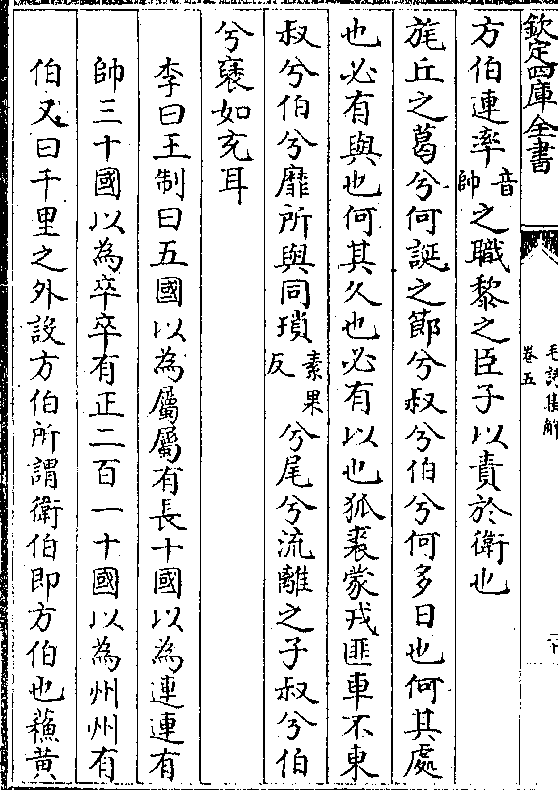 欽定四庫全書
毛詩集解
卷五
方伯連率音帥之職黎之臣子以責於衛也
旄丘之葛兮何誕之節兮叔兮伯兮何多日也何其處
也必有與也何其久也必有以也狐裘蒙戎匪車不東
叔兮伯兮靡所與同瑣素果反兮尾兮流離之子叔兮伯
兮褎如充耳
李曰王制曰五國以為屬屬有長十國以為連連有
帥三十國以為卒卒有正二百一十國以為州州有
伯又曰千里之外設方伯所謂衛伯即方伯也蘓黄